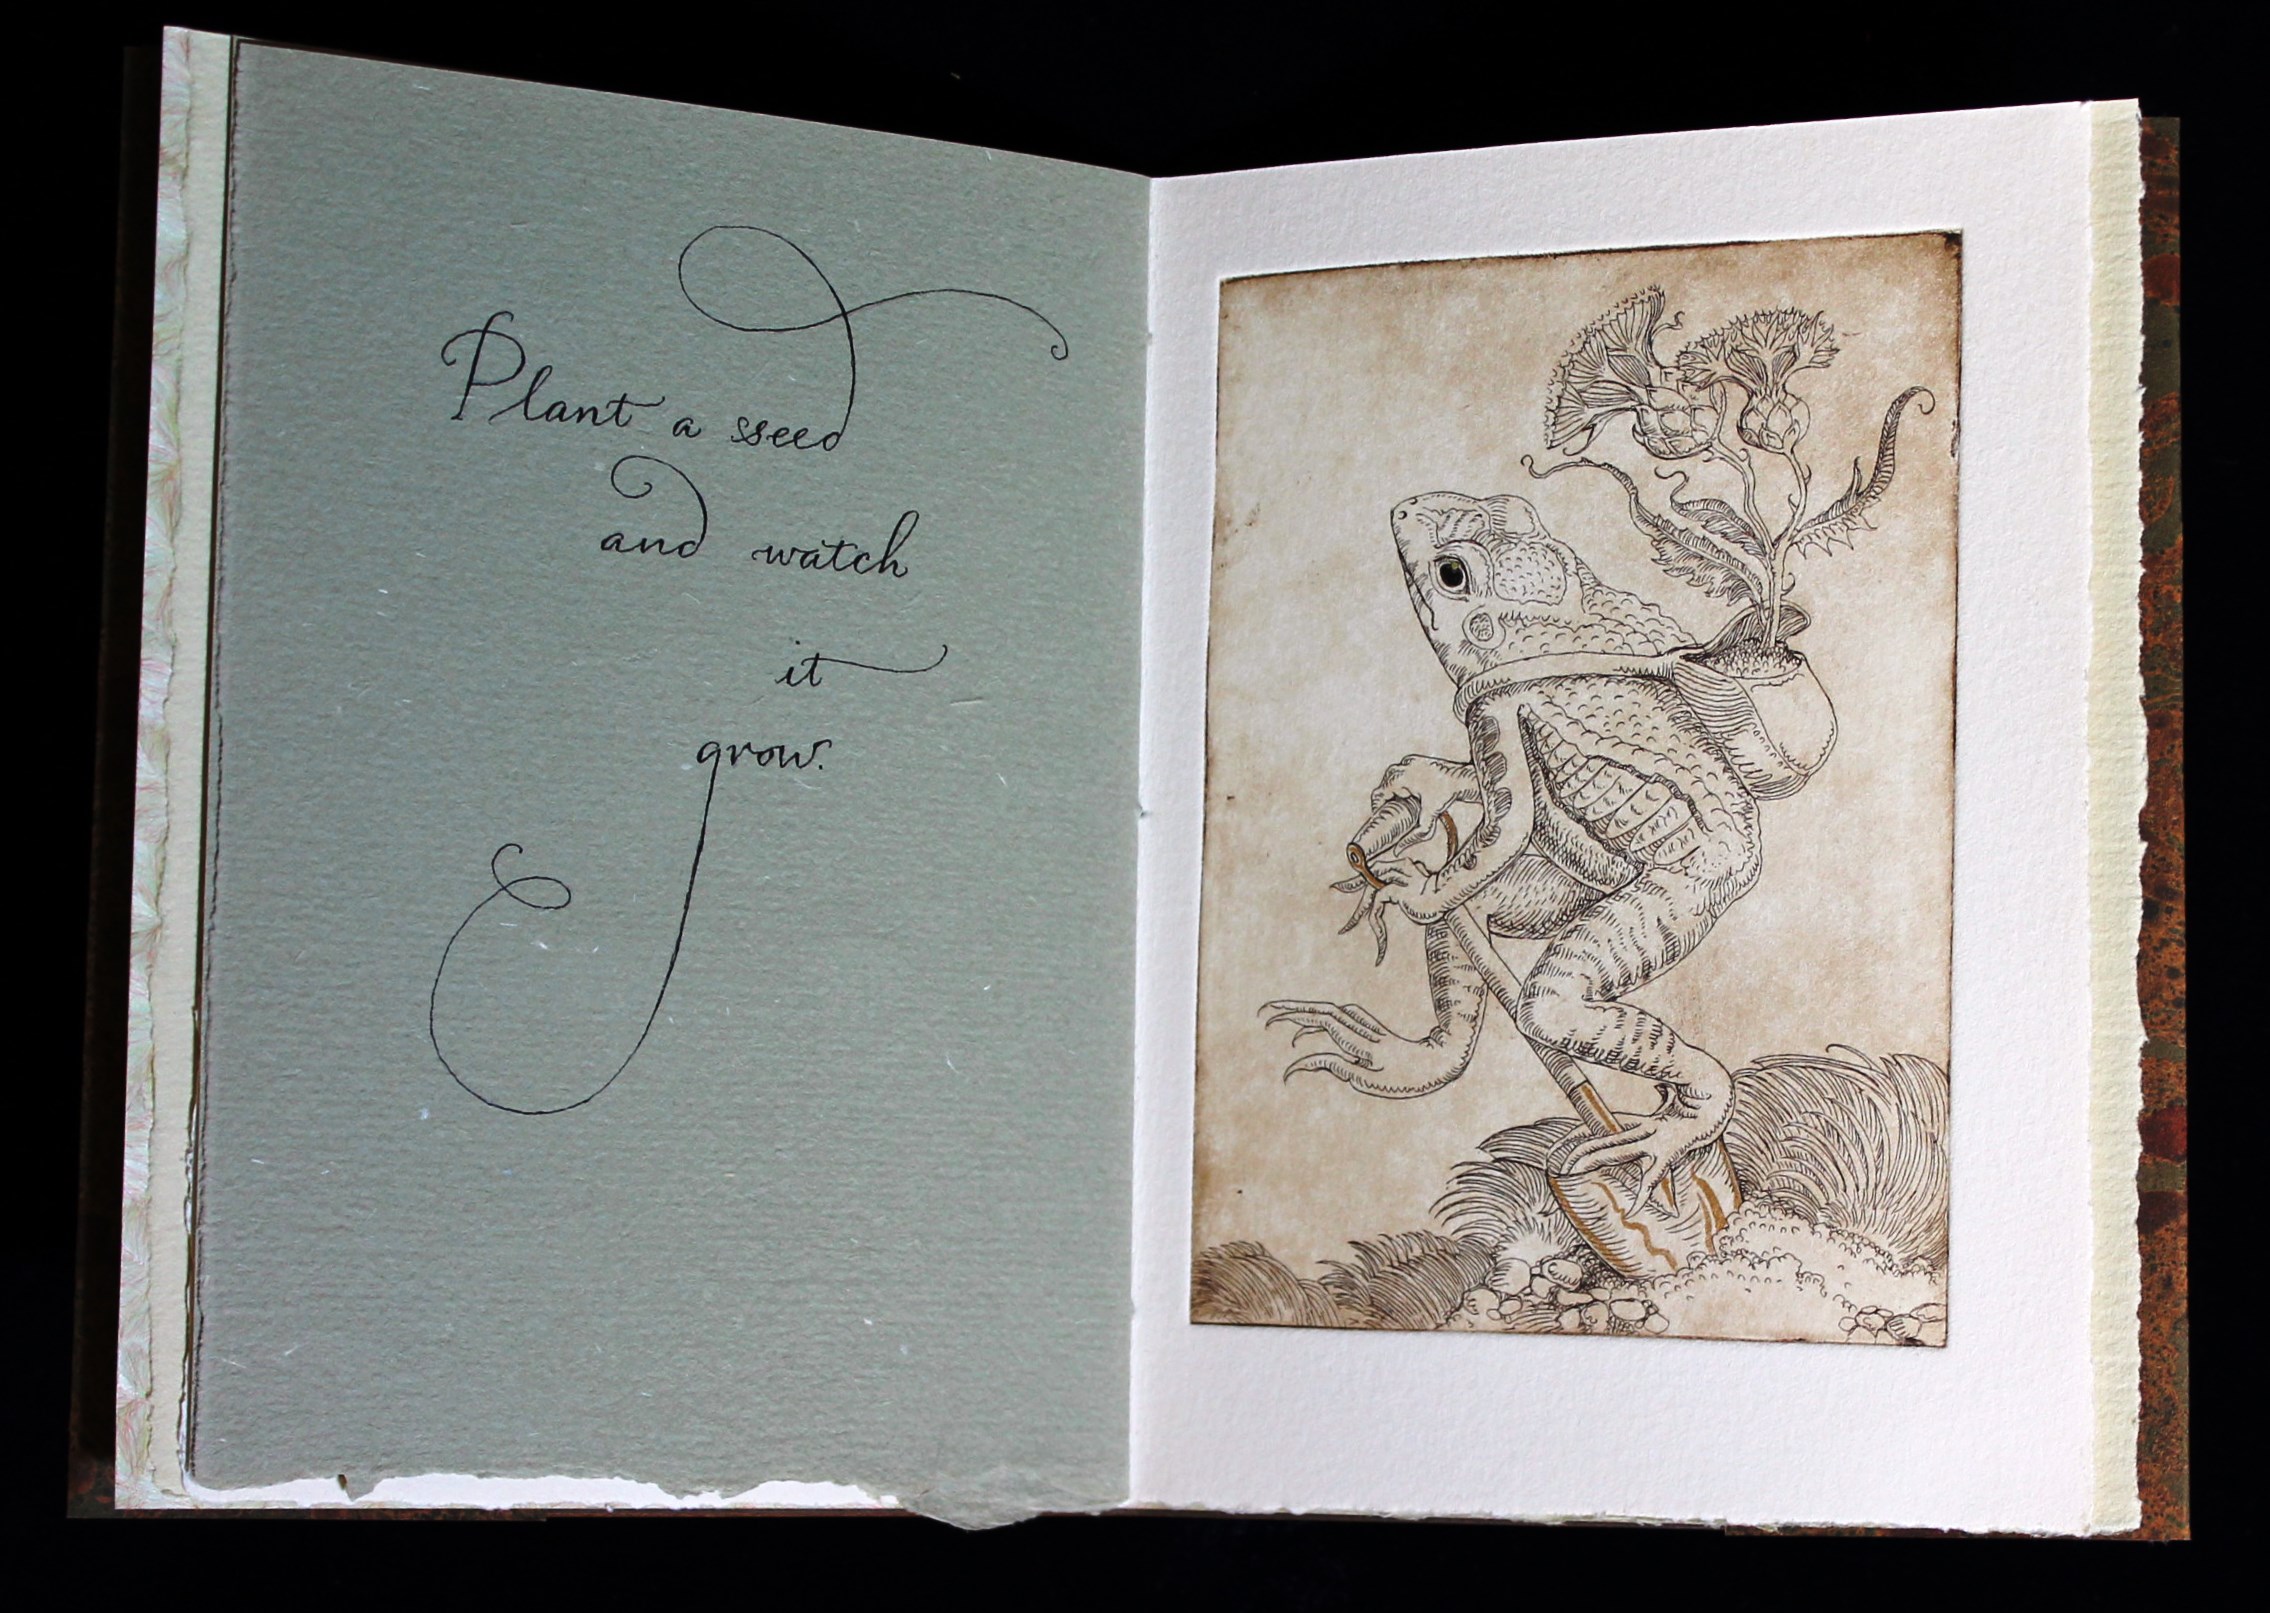 Plant a seed
and watch
it
grow.